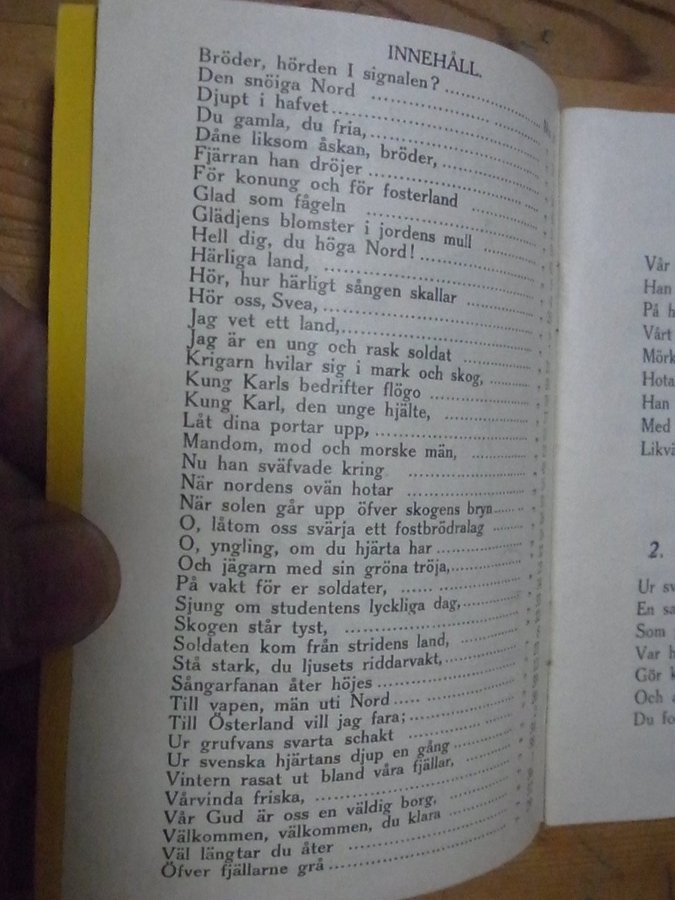 INNEHÅLL.
Bröder, hörden I signalen?
Den snöiga Nord
Djupt i hafvet
Du gamla, du fria,
Dåne liksom åskan, bröder,
Fjärran han dröjer
För konung och för fosterland
Glad som fågeln
Glädjens blomster i jordens mull
Hell dig, du höga Nord!
Härliga land,
Hör, hur härligt sången skallar
Hör oss, Svea,
Jag vet ett land,
Jag är en ung och rask soldat
Krigarn hvilar sig i mark och skog,
Kung Karls bedrifter flögo
Kung Karl, den unge hjälte,
Låt dina portar upp,
Mandom, mod och morske män,
Nu han sväfvade kring
När nordens ovän hotar
När solen går upp öfver skogens bryn
O, låtom oss svärja ett fostbrödralag
O, yngling, om du hjärta har
Och jägarn med sin gröna tröja,
På vakt för er soldater,
Sjung om studentens lyckliga dag,
Skogen står tyst,
Soldaten kom från stridens land,
Stå stark, du ljusets riddarvakt,
Sångarfanan åter höjes
Till vapen, män uti Nord
Till Österland vill jag fara;
Ur grufvans svarta schakt
Ur svenska hjärtans djup en gång
Vintern rasat ut bland våra fjällar,
Vårvinda friska,
Vår Gud är oss en väldig borg,
Välkommen, välkommen, du klara
Väl längtar du åter
Öfver fjällarne grå
Vår
Han
På
Vårt
Mörk
Hota
Han
Med
Likvä
2.
Ur sv
En sa
Som
Var h
Gör k
Och
Du fo